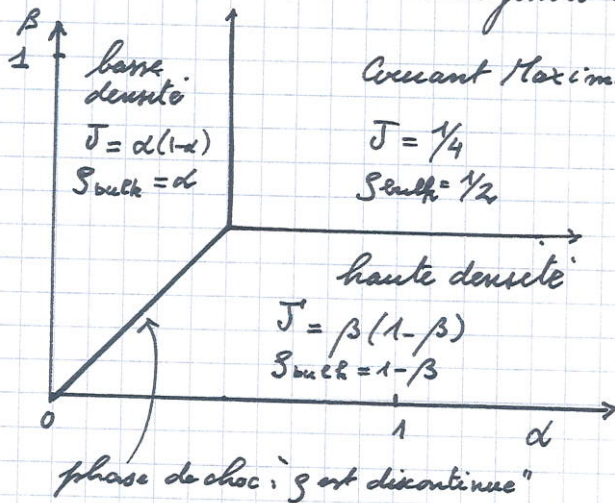 β
1
basse
densité
J = α(1-α)
ρbulk = α
Courant Maxim
J = 1/4
ρbulk = 1/2
haute densité
J = β(1-β)
ρbulk = 1-β
0
1
α
phase de choc : ρ est discontinue"